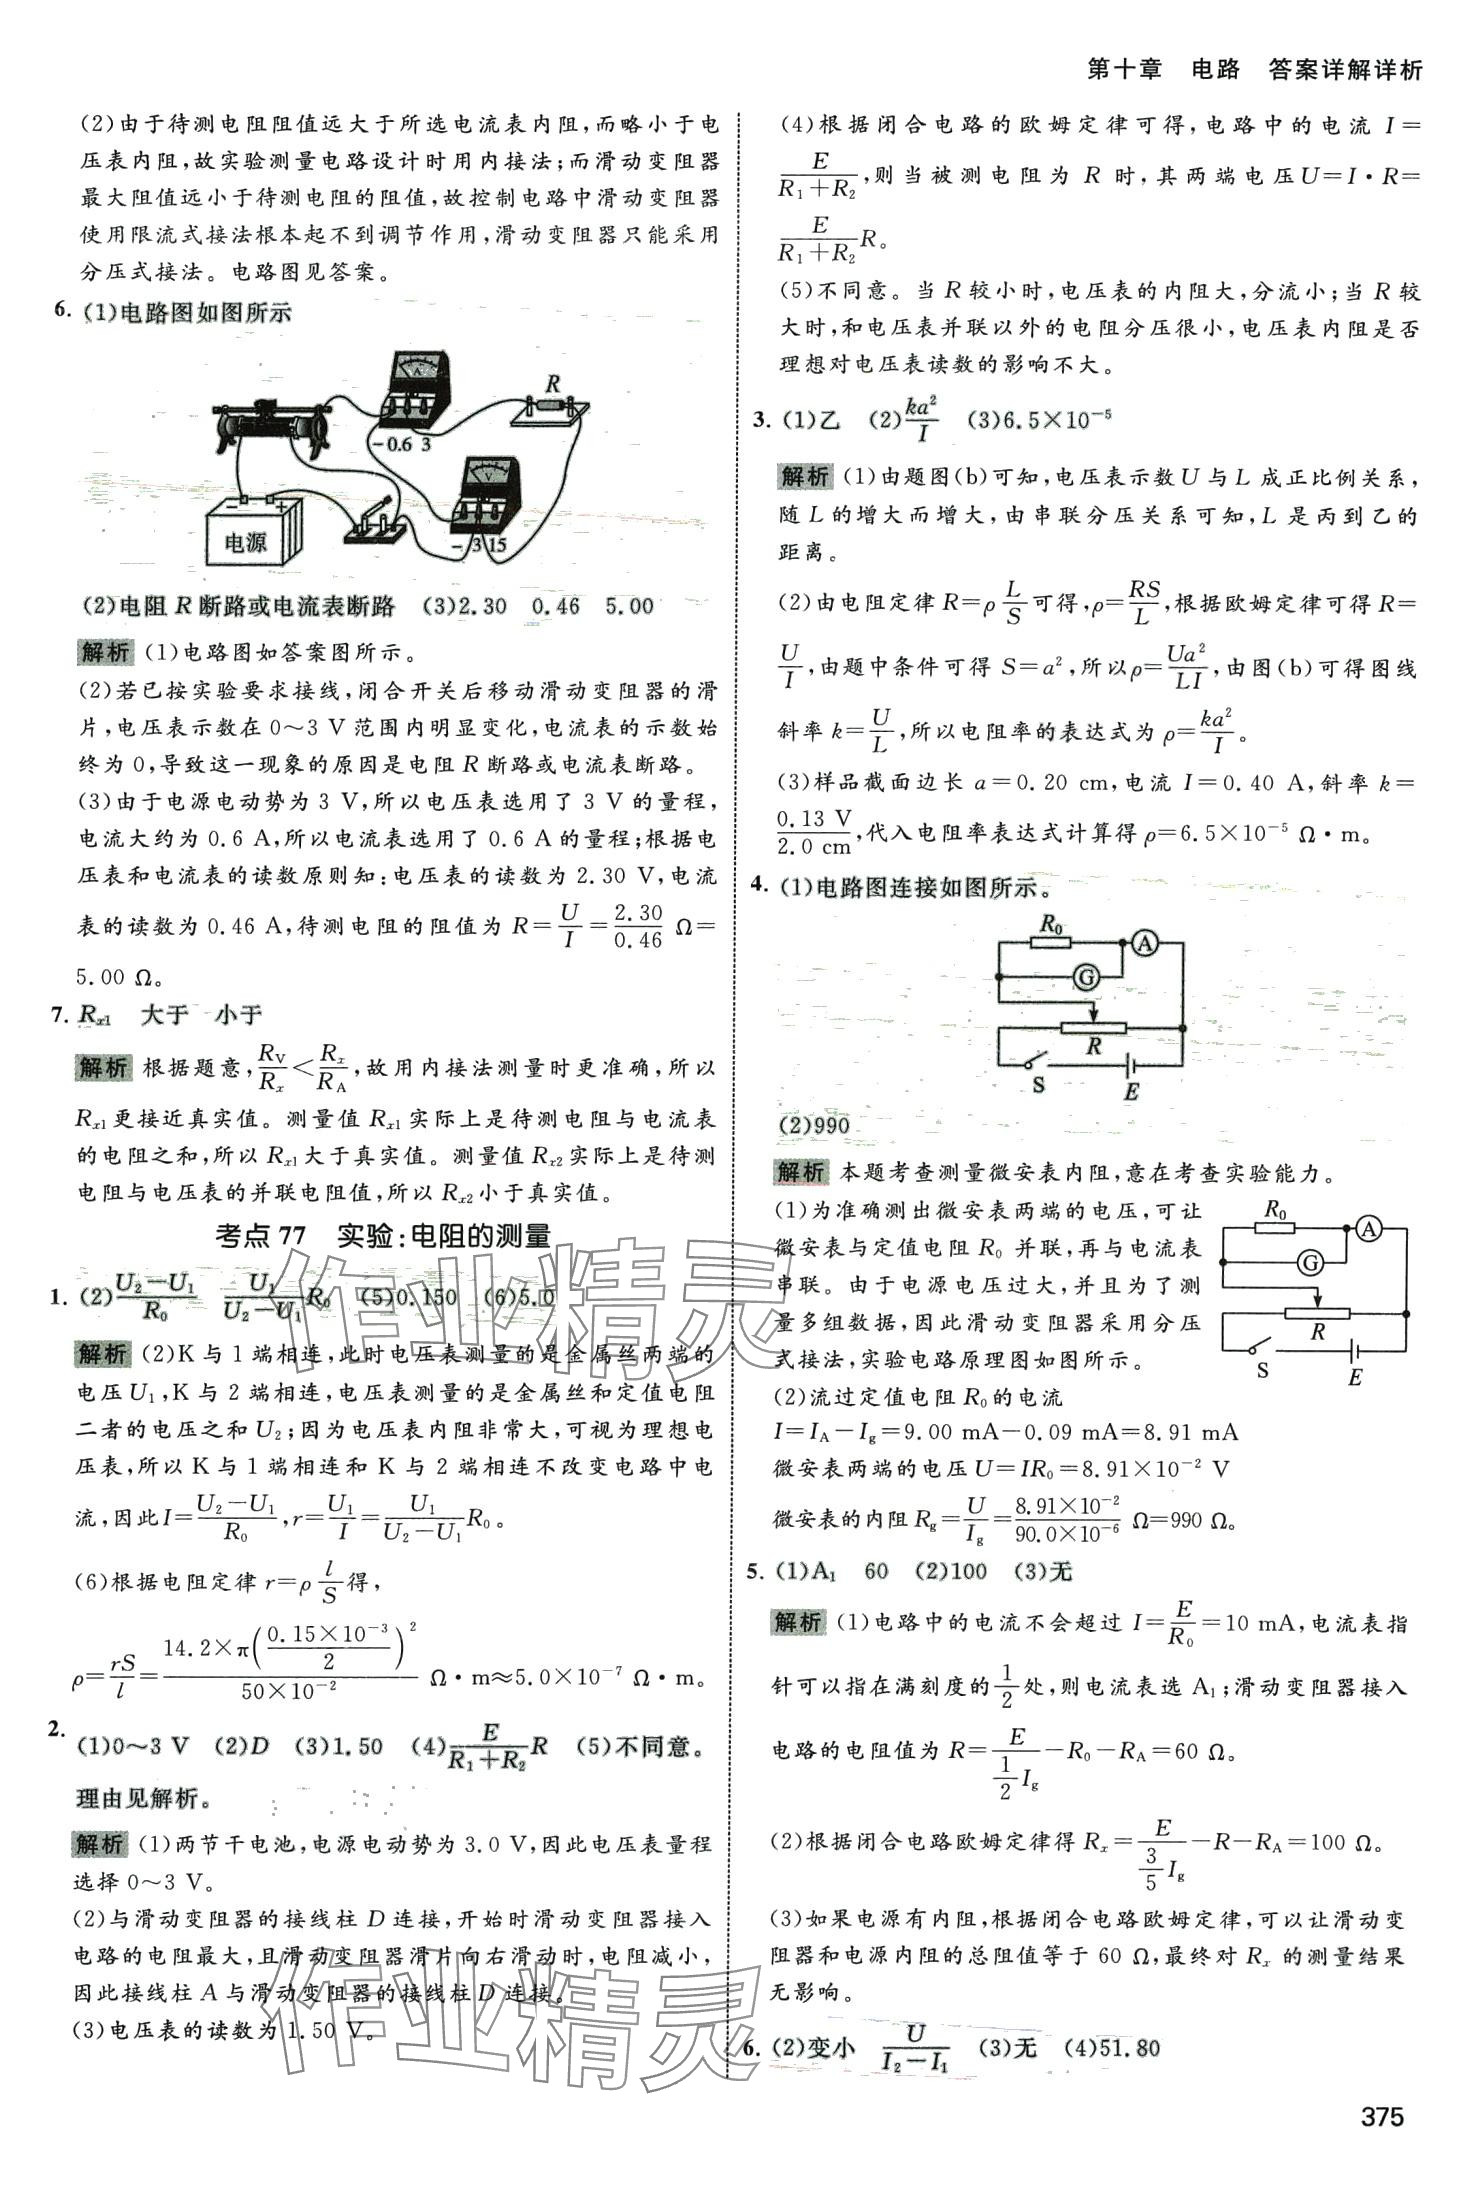 第十章 电路 答案详解详析
(2)由于待测电阻阻值远大于所选电流表内阻,而略小于电
压表内阻,故实验测量电路设计时用内接法;而滑动变阻器
最大阻值远小于待测电阻的阻值,故控制电路中滑动变阻器
使用限流式接法根本起不到调节作用,滑动变阻器只能采用
分压式接法。电路图见答案。
6. (1)电路图如图所示
A
R
-0.6 3
V
- +
电源
- 3 15
(2)电阻 R 断路或电流表断路 (3)2.30 0.46 5.00
解析 (1)电路图如答案图所示。
(2)若已按实验要求接线,闭合开关后移动滑动变阻器的滑
片,电压表示数在 0～3 V 范围内明显变化,电流表的示数始
终为 0,导致这一现象的原因是电阻 R 断路或电流表断路。
(3)由于电源电动势为 3 V,所以电压表选用了 3 V 的量程,
电流大约为 0.6 A,所以电流表选用了 0.6 A 的量程;根据电
压表和电流表的读数原则知:电压表的读数为 2.30 V,电流
表的读数为 0.46 A,待测电阻的阻值为 R=U/I=2.30/0.46 Ω=
5.00 Ω。
7. Rx1 大于 小于
解析 根据题意,RV/Rx<Rx/RA,故用内接法测量时更准确,所以
Rx1更接近真实值。测量值 Rx1实际上是待测电阻与电流表
的电阻之和,所以 Rx1大于真实值。测量值 Rx2实际上是待测
电阻与电压表的并联电阻值,所以 Rx2小于真实值。
考点 77 实验:电阻的测量
1. (2)(U2-U1)/R0 U1/(U2-U1)R0 (5)0.150 (6)5.0
解析 (2)K 与 1 端相连,此时电压表测量的是金属丝两端的
电压 U1,K 与 2 端相连,电压表测量的是金属丝和定值电阻
二者的电压之和 U2;因为电压表内阻非常大,可视为理想电
压表,所以 K 与 1 端相连和 K 与 2 端相连不改变电路中电
流,因此 I=(U2-U1)/R0,r=U1/I=U1/(U2-U1)R0。
(6)根据电阻定律 r=ρ l/S得,
ρ=rS/l=14.2×π(0.15×10⁻³/2)²/(50×10⁻²) Ω·m≈5.0×10⁻⁷ Ω·m。
2. (1)0～3 V (2)D (3)1.50 (4)E/(R1+R2)R (5)不同意。
理由见解析。
解析 (1)两节干电池,电源电动势为 3.0 V,因此电压表量程
选择 0～3 V。
(2)与滑动变阻器的接线柱 D 连接,开始时滑动变阻器接入
电路的电阻最大,且滑动变阻器滑片向右滑动时,电阻减小,
因此接线柱 A 与滑动变阻器的接线柱 D 连接。
(3)电压表的读数为 1.50 V。
(4)根据闭合电路的欧姆定律可得,电路中的电流 I=
E/(R1+R2),则当被测电阻为 R 时,其两端电压U=I·R=
E/(R1+R2)R。
(5)不同意。当 R 较小时,电压表的内阻大,分流小;当 R 较
大时,和电压表并联以外的电阻分压很小,电压表内阻是否
理想对电压表读数的影响不大。
3. (1)乙 (2)ka²/I (3)6.5×10⁻⁵
解析 (1)由题图(b)可知,电压表示数 U 与 L 成正比例关系,
随 L 的增大而增大,由串联分压关系可知,L 是丙到乙的
距离。
(2)由电阻定律 R=ρ L/S可得,ρ=RS/L,根据欧姆定律可得 R=
U/I,由题中条件可得 S=a²,所以ρ=Ua²/LI,由图(b)可得图线
斜率 k=U/L,所以电阻率的表达式为 ρ=ka²/I。
(3)样品截面边长 a=0.20 cm,电流 I=0.40 A,斜率 k=
0.13 V/2.0 cm,代入电阻率表达式计算得 ρ=6.5×10⁻⁵ Ω·m。
4. (1)电路图连接如图所示。
R0
A
G
R
S
E
(2)990
解析 本题考查测量微安表内阻,意在考查实验能力。
(1)为准确测出微安表两端的电压,可让
微安表与定值电阻 R0 并联,再与电流表
串联。由于电源电压过大,并且为了测
量多组数据,因此滑动变阻器采用分压
式接法,实验电路原理图如图所示。
R0
A
G
R
S
E
(2)流过定值电阻 R0的电流
I=IA-Ig=9.00 mA-0.09 mA=8.91 mA
微安表两端的电压 U=IR0=8.91×10⁻² V
微安表的内阻 Rg=U/Ig=8.91×10⁻²/90.0×10⁻⁶ Ω=990 Ω。
5. (1)A1 60 (2)100 (3)无
解析 (1)电路中的电流不会超过 I=E/R0=10 mA,电流表指
针可以指在满刻度的1/2处,则电流表选 A1;滑动变阻器接入
电路的电阻值为 R=E/(1/2 Ig)-R0-RA=60 Ω。
(2)根据闭合电路欧姆定律得 Rx=E/(3/5 Ig)-R-RA=100 Ω。
(3)如果电源有内阻,根据闭合电路欧姆定律,可以让滑动变
阻器和电源内阻的总阻值等于 60 Ω,最终对 Rx 的测量结果
无影响。
6. (2)变小 U/(I2-I1) (3)无 (4)51.80
375
作业精灵
作业精灵